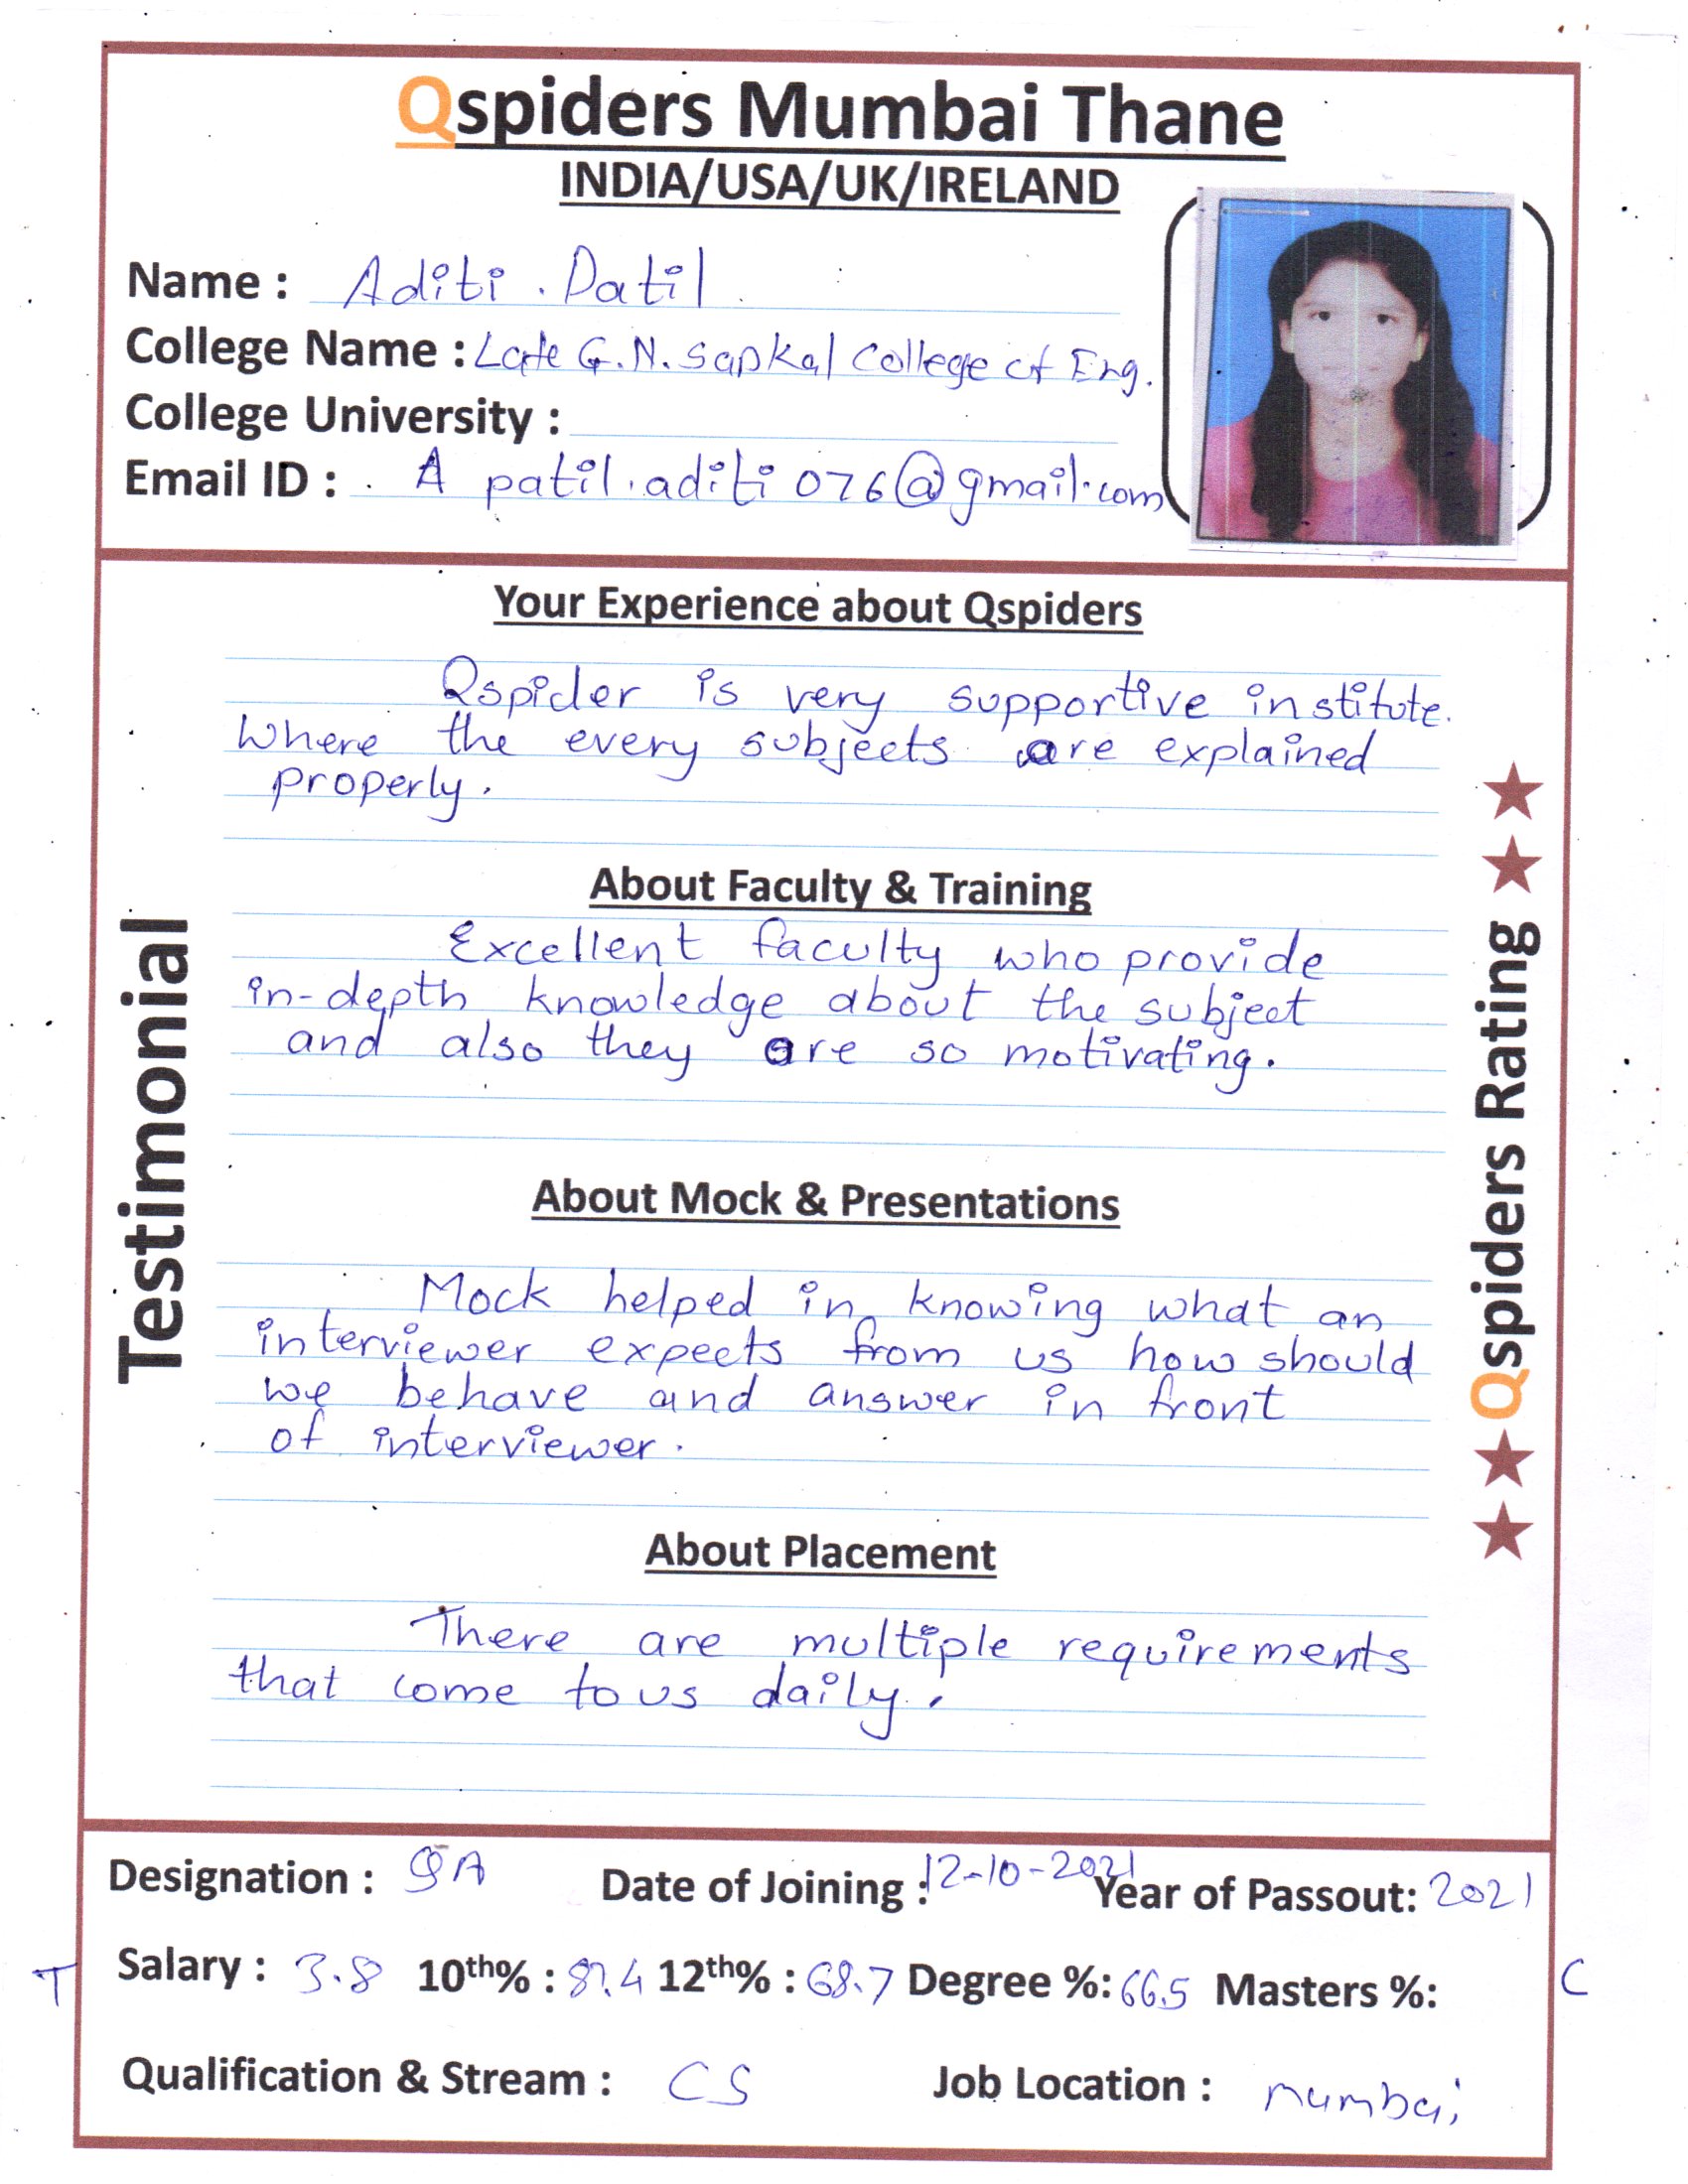 Qspiders Mumbai Thane
INDIA/USA/UK/IRELAND
Name : Aditi . Patil
College Name : Late G.N. Sapkal College of Eng.
College University :
Email ID : A patil.aditi076@gmail.com
Your Experience about Qspiders
Qspider is very supportive institute.
Where the every subjects are explained
properly.
About Faculty & Training
Excellent faculty who provide
in-depth knowledge about the subject
and also they are so motivating.
About Mock & Presentations
Mock helped in knowing what an
interviewer expects from us how should
we behave and answer in front
of interviewer.
About Placement
There are multiple requirements
that come to us daily.
Testimonial
Qspiders Rating
Designation : QA Date of Joining : 12-10-2021 Year of Passout: 2021
T Salary : 3.8 10th% : 87.4 12th% : 68.7 Degree %: 66.5 Masters %: C
Qualification & Stream : CS Job Location : mumbai